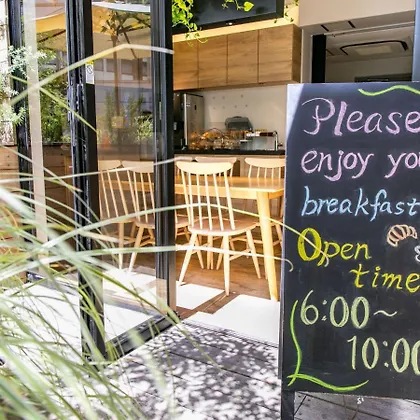 Please
enjoy you
breakfast
Open
time
6:00~
10:00